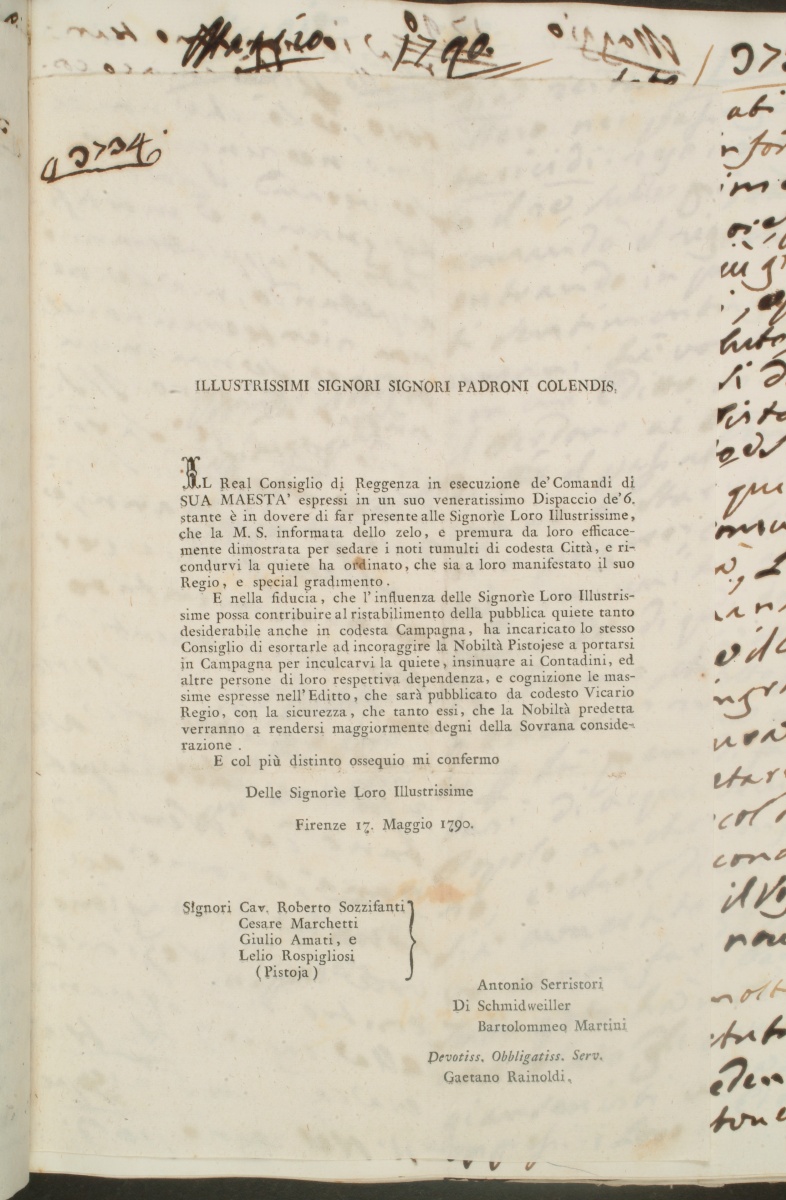 Maggio 1790.
3734.
ILLUSTRISSIMI SIGNORI SIGNORI PADRONI COLENDIS.
IL Real Consiglio di Reggenza in esecuzione de' Comandi di
SUA MAESTA' espressi in un suo veneratissimo Dispaccio de' 6.
stante è in dovere di far presente alle Signorìe Loro Illustrissime,
che la M. S. informata dello zelo, e premura da loro efficace-
mente dimostrata per sedare i noti tumulti di codesta Città, e ri-
condurvi la quiete ha ordinato, che sia a loro manifestato il suo
Regio, e special gradimento.
E nella fiducia, che l'influenza delle Signorìe Loro Illustris-
sime possa contribuire al ristabilimento della pubblica quiete tanto
desiderabile anche in codesta Campagna, ha incaricato lo stesso
Consiglio di esortarle ad incoraggire la Nobiltà Pistojese a portarsi
in Campagna per inculcarvi la quiete, insinuare ai Contadini, ed
altre persone di loro respettiva dependenza, e cognizione le mas-
sime espresse nell'Editto, che sarà pubblicato da codesto Vicario
Regio, con la sicurezza, che tanto essi, che la Nobiltà predetta
verranno a rendersi maggiormente degni della Sovrana conside-
razione.
E col più distinto ossequio mi confermo
Delle Signorìe Loro Illustrissime
Firenze 17. Maggio 1790.
Signori Cav. Roberto Sozzifanti
Cesare Marchetti
Giulio Amati, e
Lelio Rospigliosi
(Pistoja)
Antonio Serristori
Di Schmidweiller
Bartolommeo Martini
Devotiss. Obbligatiss. Serv.
Gaetano Rainoldi.